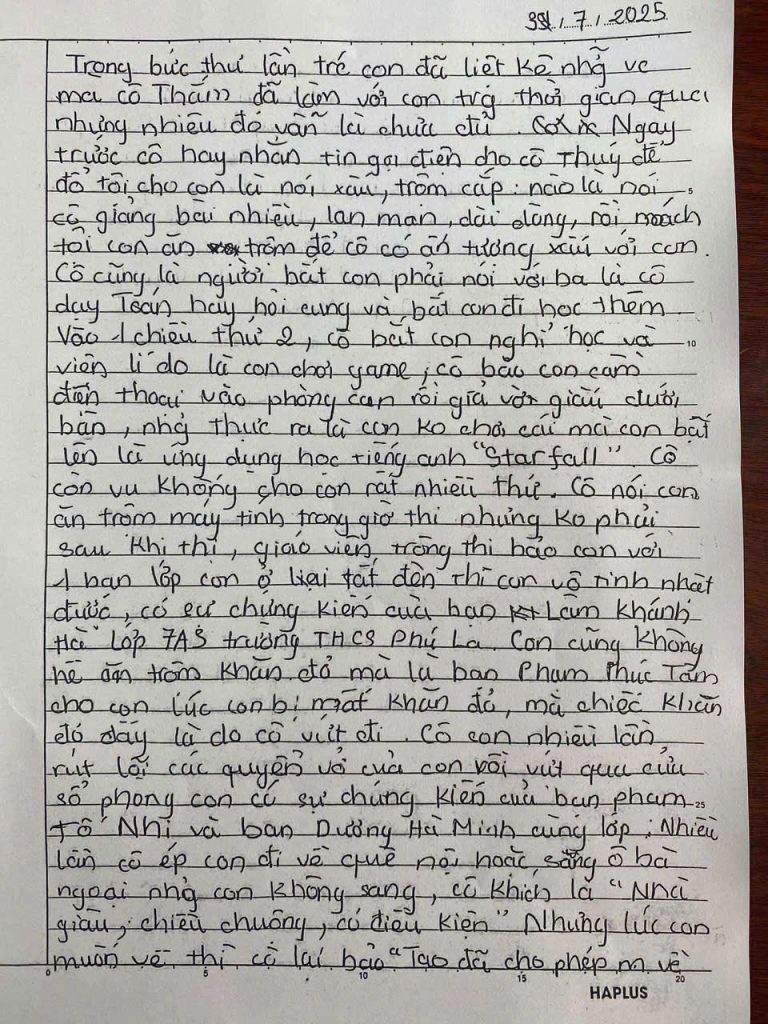 31/7/2025
Trong bức thư lần trc con đã liệt kê nhg vc
mà cô Thắm đã làm với con trg thời gian qua
nhưng nhiêu đó vẫn là chưa đủ. Ngay
trước cô hay nhắn tin gọi điện cho cô Thuý để
đổ tội cho con là nói xấu, trộm cắp: nào là nói
cô giảng bài nhiều, lan man, dài dòng, rồi mách
tội con ăn trộm để cô có ấn tượng xấu với con.
Cô cũng là người bắt con phải nói với ba là cô
dạy Toán hay hỏi cung và bắt con đi học thêm.
Vào 1 chiều thứ 2, cô bắt con nghỉ học và
viện lí do là con chơi game; cô bảo con cầm
điện thoại vào phòng con rồi giả vờ giấu dưới
bàn, nhg thực ra là con ko chơi cái mà con bật
lên là ứng dụng học tiếng anh "Starfall". Cô
còn vu khống cho con rất nhiều thứ. Cô nói con
ăn trộm máy tính trong giờ thi nhưng ko phải
sau khi thi, giáo viên trông thi bảo con với
1 bạn lớp con ở lại tắt đèn thì con vô tình nhặt
được, có sự chứng kiến của bạn Lâm Khánh
Hà lớp 7A5 trường THCS Phú La. Con cũng không
hề ăn trộm khăn đỏ mà là bạn Phạm Phúc Tâm
cho con lúc con bị mất khăn đỏ, mà chiếc khăn
đó đấy là do cô vứt đi. Cô còn nhiều lần
rút lõi các quyển vở của con rồi vứt qua cửa
sổ phòng con có sự chứng kiến của bạn Phạm
Tố Nhi và bạn Dương Hà Minh cùng lớp; Nhiều
lần cô ép con đi về quê nội hoặc sang ô bà
ngoại nhg con không sang, cô khích là "Nhà
giàu, chiều chuộng, có điều kiện" Nhưng lúc con
muốn về thì cô lại bảo "Tao đã cho phép m về
5
10
25
0 5 10 15 20
HAPLUS